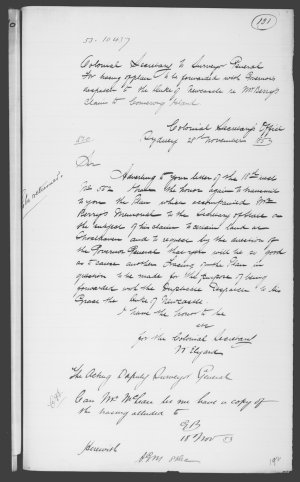 121
53-10437
Colonial Secretary to Surveyor General
For tracing of plan to be forwarded with Governors
despatch to the Duke of Newcastle re Mr Berrys
claim to Comerong Island.
Colonial Secretary's Office
Sydney 28th November 853
Sir
Adverting to your letter of the 18th
No 502 I have the honor again to transmit
to you the Plan which accompanied Mr
Berry's Memorial to the
the subject of his claim to certain land at
Shoalhaven and to request by the direction of
the Governor General that you will be so good
as to cause another tracing of the Plan in
question to be made for the purpose of being
forwarded with the Duplicate Despatch to His
Grace the Duke of Newcastle
I have the honor to be
Sir
for the Colonial Secretary
W Elyard
The Acting Deputy Surveyor General
Can Mr McLean let me have a copy of
the tracing alluded to
18 Nov 53
Herewith